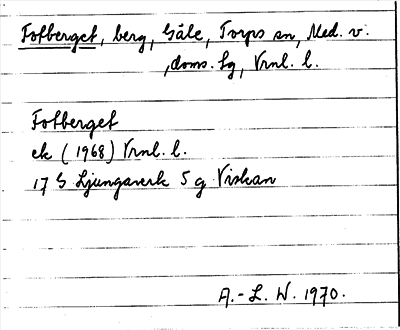 Fotberget, berg, Gåle, Torps sn, Med. v.
,doms. lg, Vrnl. l.
Fotberget
ek (1968) Vrnl. l.
17 G Ljungaverk 5 g Viskan
A.-L. W. 1970.